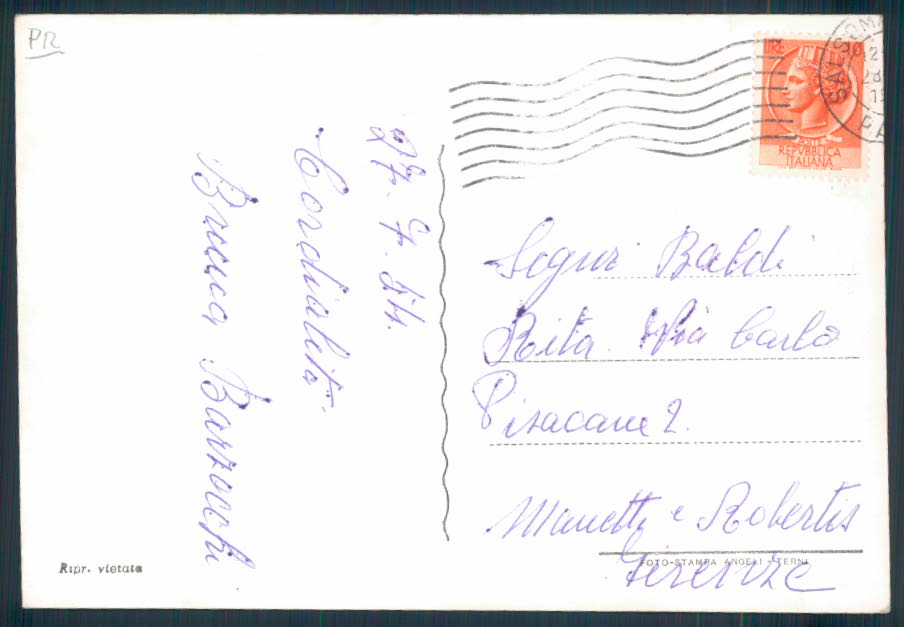 PR
27.7.54.
Cordialità
Bruna Barzocchi
LIRE
POSTE
REPVBBLICA
ITALIANA
SALSOM
28
Segnr Baldi
Rita. Via Carlo
Pisacane 2.
Manetti e Robertis
Firenze
Ripr. vietata
FOTO-STAMPA ANGELI - TERNI